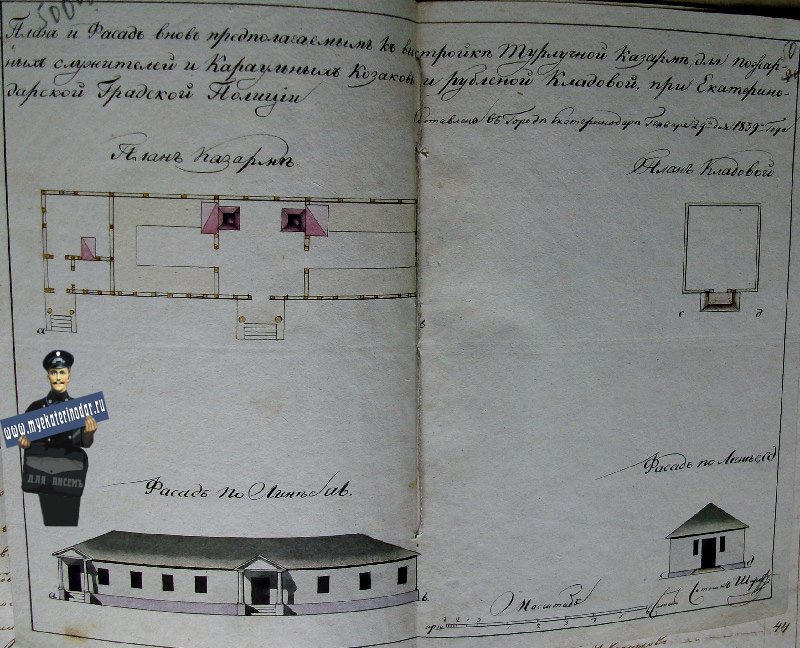 Планъ и Фасадъ вновь предполагаемымъ къ выстройкѣ Турлучной Казармѣ, для пожар-
ныхъ служителей и Караульныхъ Козаковъ и рубленой Кладовой, при Екатерино-
дарской Градской Полиціи
Составленъ въ Городѣ Екатеринодарѣ Генваря 29го дня 1839го Года
Планъ Казармѣ.
Планъ Кладовой
а
в
с
д
www.myekaterinodar.ru
ДЛЯ ПИСЕМЪ
Фасадъ по Линѣе ав.
Фасадъ по Линѣе, сд
а
в
с
д
Масштабъ
44